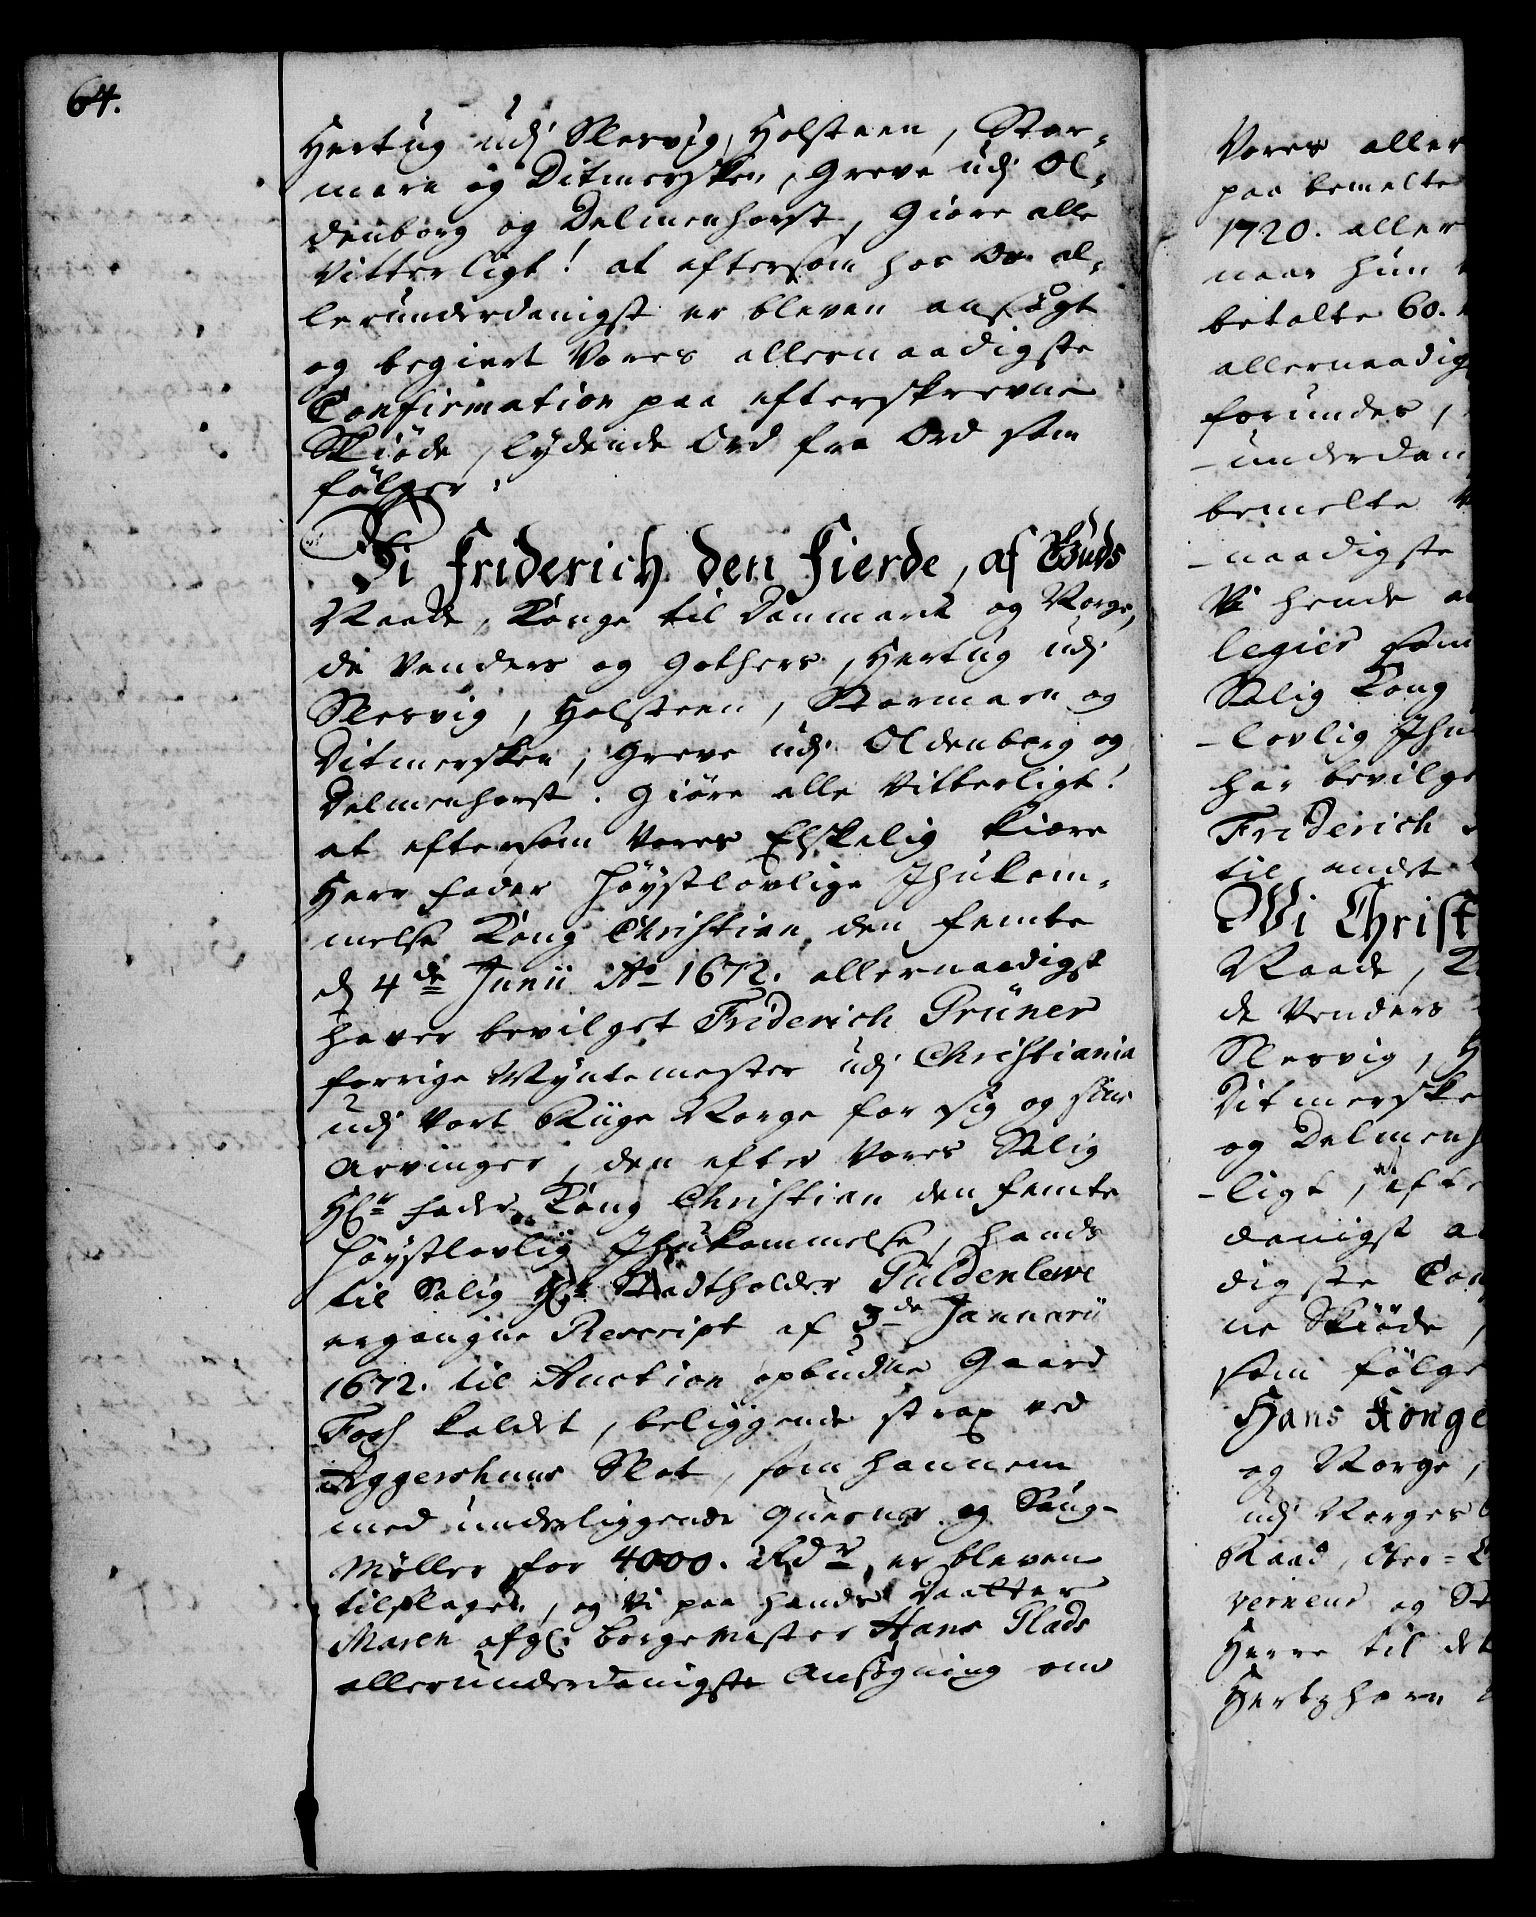 64.
Hertug udj Slesvig, Holsteen, Stor-
marn og Ditmersken, Greve udj Ol-
denborg og Delmenhorst, Giöre alle
Vitterligt! at eftersom hos Os al-
lerunderdanigst er bleven ansögt
og begiert Vores allernaadigste
Confirmation paa efterskrevne
Skiöde, lydende Ord fra Ord som
fölger:
Wi Friderich den Fierde, af Guds
Naade, Konge til Danmark og Norge,
de Venders og Gothers, Hertug udj
Slesvig, Holsteen, Stormarn og
Ditmersken, Greve udj Oldenborg og
Delmenhorst. Giöre alle Vitterligt!
at eftersom Vores Elskelig kiære
Herr Fader höystlovlige Ihukom-
melse Kong Christian den Femte
dj 4de Junii Ao 1672. allernaadigst
haver bevilget Friderich Grüner
forrige Myntemester udj Christiania
udj Vort Riige Norge for sig og sine
Arvinger, den efter Vores Salig
Hr Fader Kong Christian den Femte
höystlovlig Ihukommelse, hands
til Salig Hr Stadtholder Güldenlewe
ergangne Rescript af 3de Januarii
1672. til Auction opbudne Gaard
Foss kaldet, beliggende strax ved
Aggershuus Slot, som hannem
med underliggende Querner og Saug-
Møller for 4000. Rdr er bleven
tilslagen, og Vi paa hands Daatter
Maren afgl: Borgemester Hans Glads
allerunderdanigste Ansögning om
Vores aller
paa bemelte
1720. aller
naar hun
betalte 60.
allernaadig
forundes,
-underdan
bemelte
-naadigste
Vi hende
legier som
Salig Kong
-lovlig Ihu
har bevilge
Friderich
til andet
Wi Christ
Naade,
de Venders
Slesvig, H
Ditmerske
og Delmenh
-ligt, at efte
danigst
digste Con
ne Skiöde,
som fölge
Hans Konge
og Norge,
udj Norges
Raad, Ober-
verneur og St
Herre til det
Hertzhorn